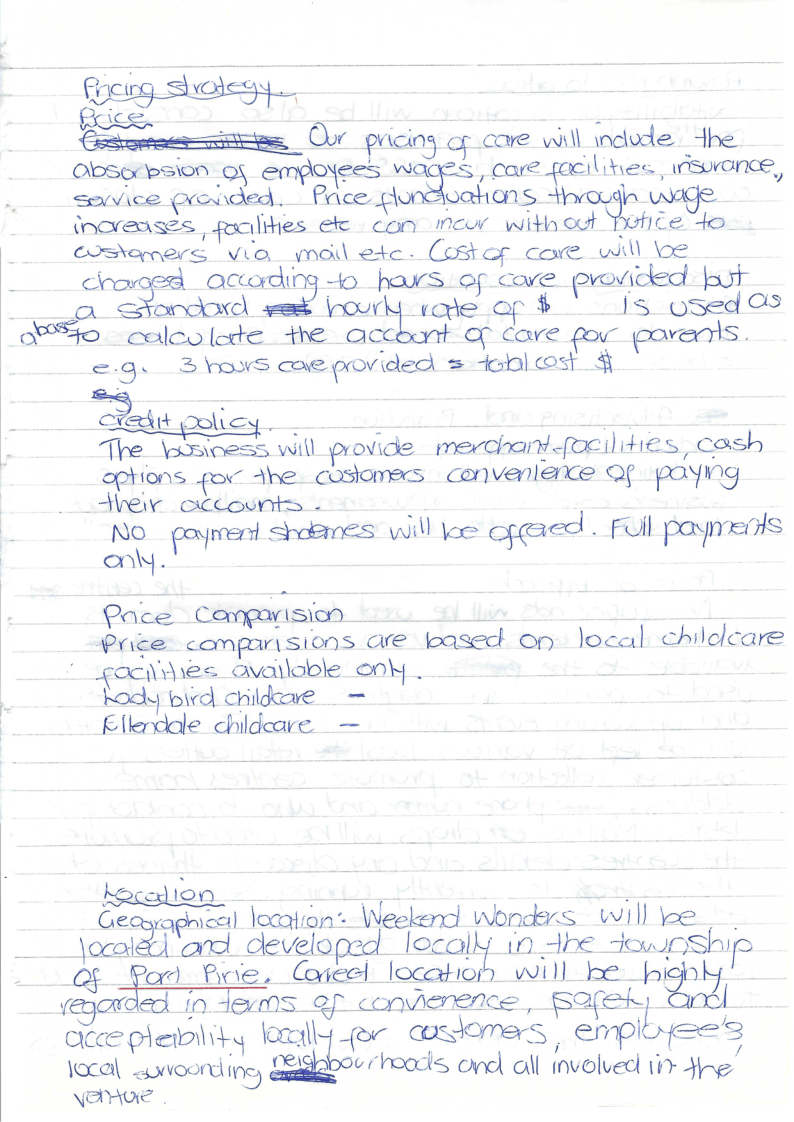 Pricing strategy.
Price
Customers will be Our pricing of care will include the
absorbsion of employees wages, care facilities, insurance,
service provided. Price flunctuations through wage
increases, facilities etc can incur without notice to
customers via mail etc. Cost of care will be
charged according to hours of care provided but
a standard rat hourly rate of $ is used as
a base to calculate the account of care for parents.
e.g. 3 hours care provided = total cost $
e.g
Credit policy.
The business will provide merchant facilities, cash
options for the customers convenience of paying
their accounts.
No payment shcemes will be offered. Full payments
only.
Price Comparision
Price comparisions are based on local childcare
facilities available only.
Lady bird childcare –
Ellendale childcare –
Location
Geographical location:- Weekend Wonders will be
located and developed locally in the township
of Port Pirie. Correct location will be highly
regarded in terms of convienence, safety and
accepteibility locally for customers, employee's
local surrounding neighbourhoods and all involved in the
venture.